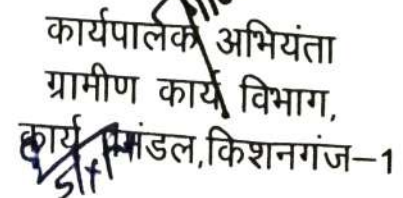 कार्यपालक अभियंता
ग्रामीण कार्य विभाग,
कार्य प्रमंडल,किशनगंज-1